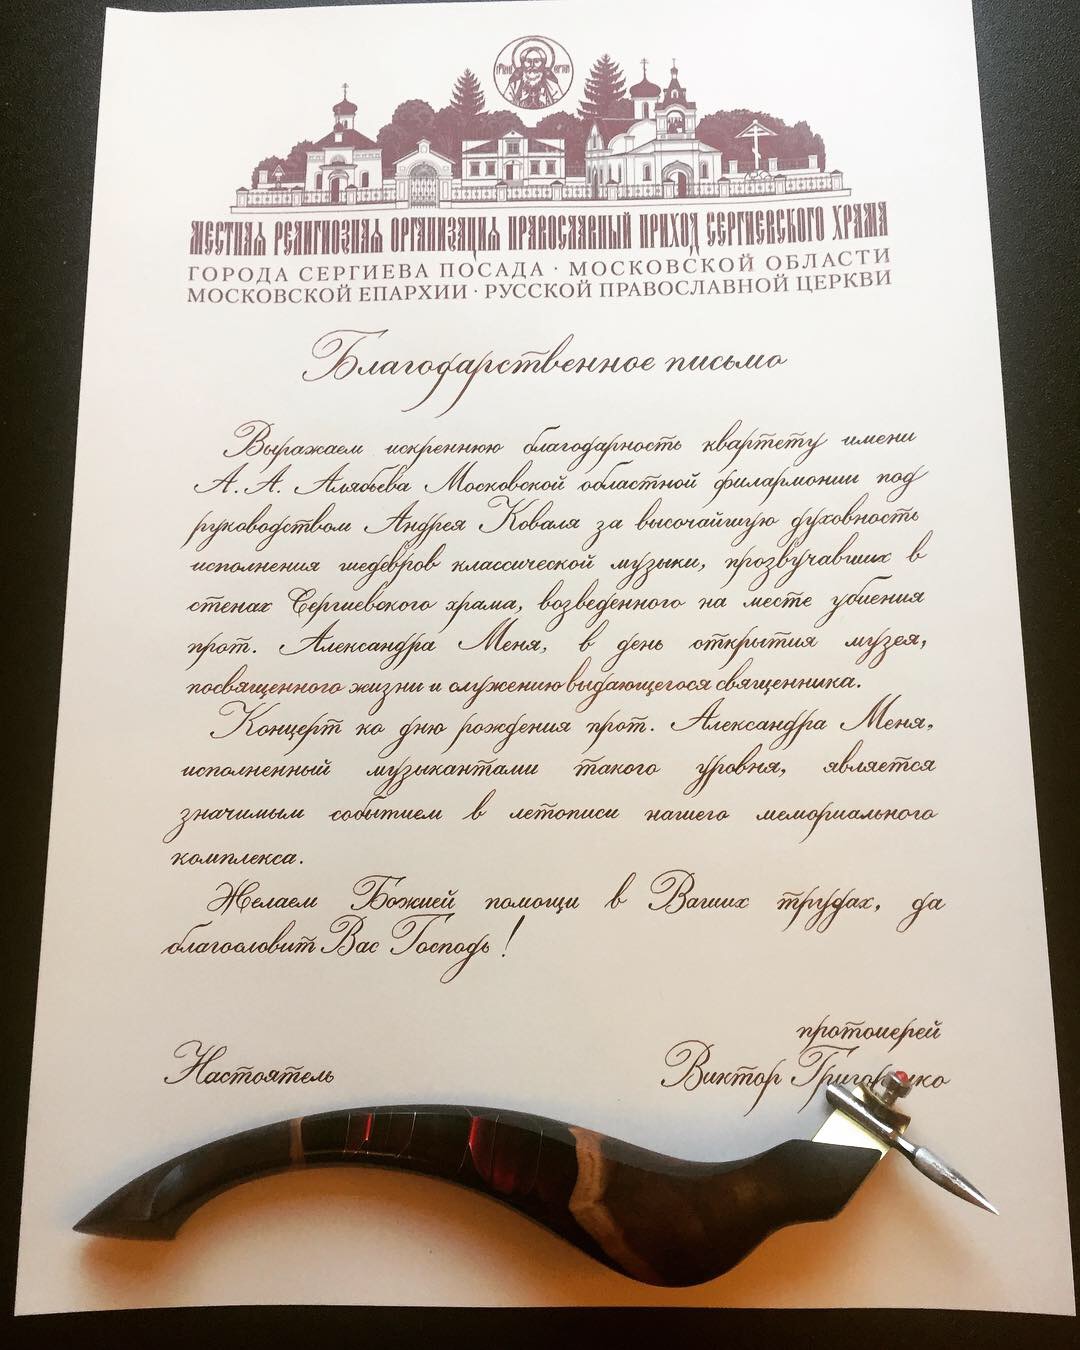 МЕСТНАЯ РЕЛИГИОЗНАЯ ОРГАНИЗАЦИЯ ПРАВОСЛАВНЫЙ ПРИХОД СЕРГИЕВСКОГО ХРАМА
ГОРОДА СЕРГИЕВА ПОСАДА · МОСКОВСКОЙ ОБЛАСТИ
МОСКОВСКОЙ ЕПАРХИИ · РУССКОЙ ПРАВОСЛАВНОЙ ЦЕРКВИ
Благодарственное письмо
Выражаем искреннюю благодарность квартету имени
А. А. Алябьева Московской областной филармонии под
руководством Андрея Коваля за высочайшую духовность
исполнения шедевров классической музыки, прозвучавших в
стенах Сергиевского храма, возведенного на месте убиения
прот. Александра Меня, в день открытия музея,
посвященного жизни и служению выдающегося священника.
Концерт ко дню рождения прот. Александра Меня,
исполненный музыкантами такого уровня, является
значимым событием в летописи нашего мемориального
комплекса.
Желаем Божией помощи в Ваших трудах, да
благословит Вас Господь!
протоиерей
Настоятель Виктор